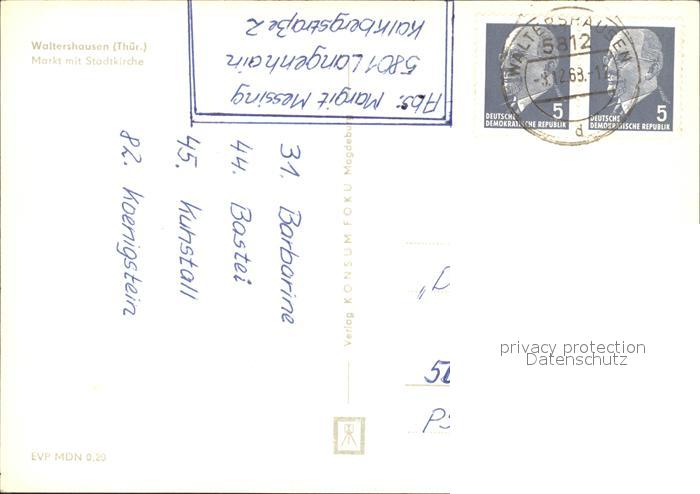 Waltershausen (Thür.)
Markt mit Stadtkirche
Abs. Margit Messing
5801 Langenhain
Kalkbergstraße 2
31. Barbarine
44. Bastei
45. Kuhstall
82. Koenigstein
Verlag KONSUM FOKU Magdeburg
WALTERSHAUSEN
5812
d
5
DEUTSCHE
DEMOKRATISCHE REPUBLIK
5
DEUTSCHE
DEMOKRATISCHE REPUBLIK
privacy protection
Datenschutz
EVP MDN 0,20